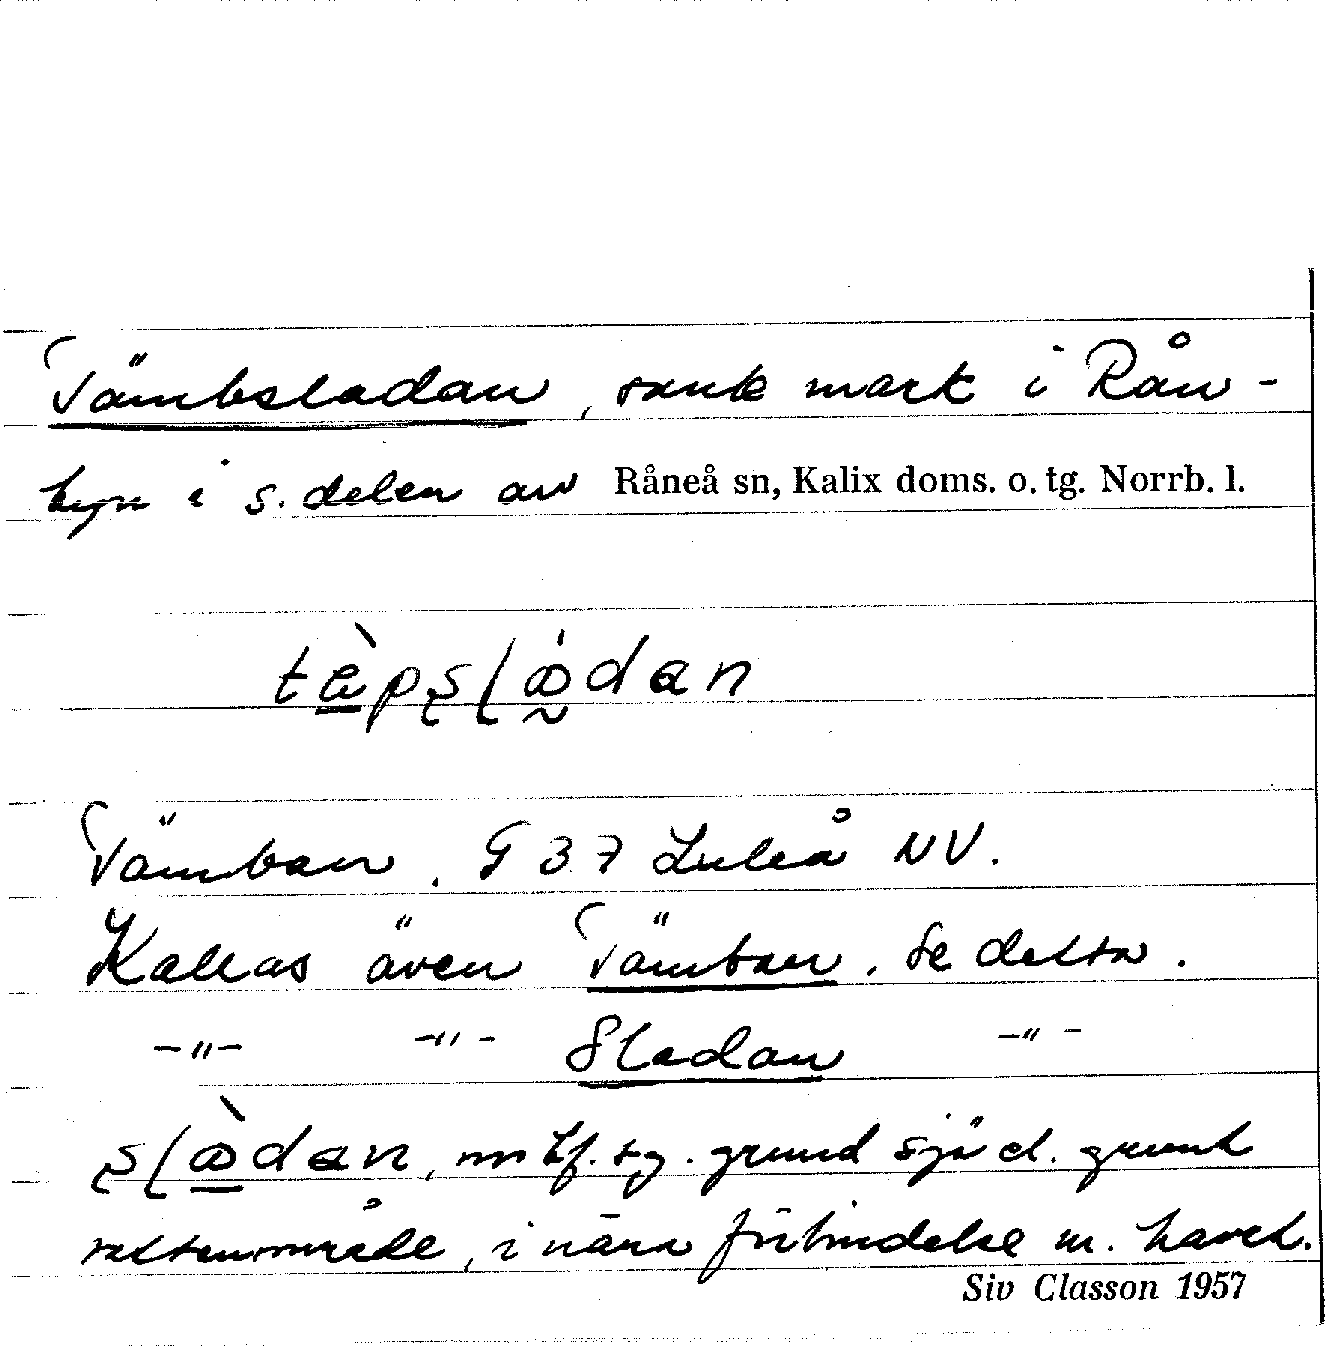 Tämbsladan, sank mark i Rån-
byn i s. delen av Råneå sn, Kalix doms. o. tg. Norrb. l.
Tämban. G 37 Luleå NV.
Kallas även Tämban. Se detta.
-"- -"- Sladan -"-
m bf. sg. grund sjö el. grunt
vattenområde, i nära förbindelse m. havet.
Siv Classon 1957